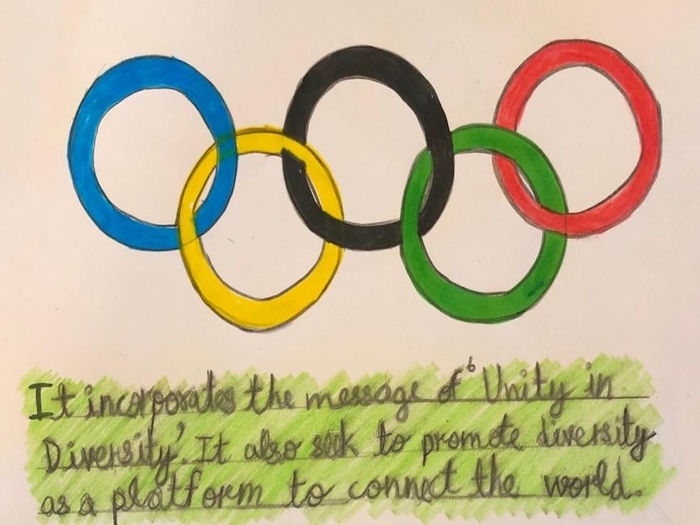 It incorporates the message of ‘Unity in
Diversity’. It also seek to promote diversity
as a platform to connect the world.